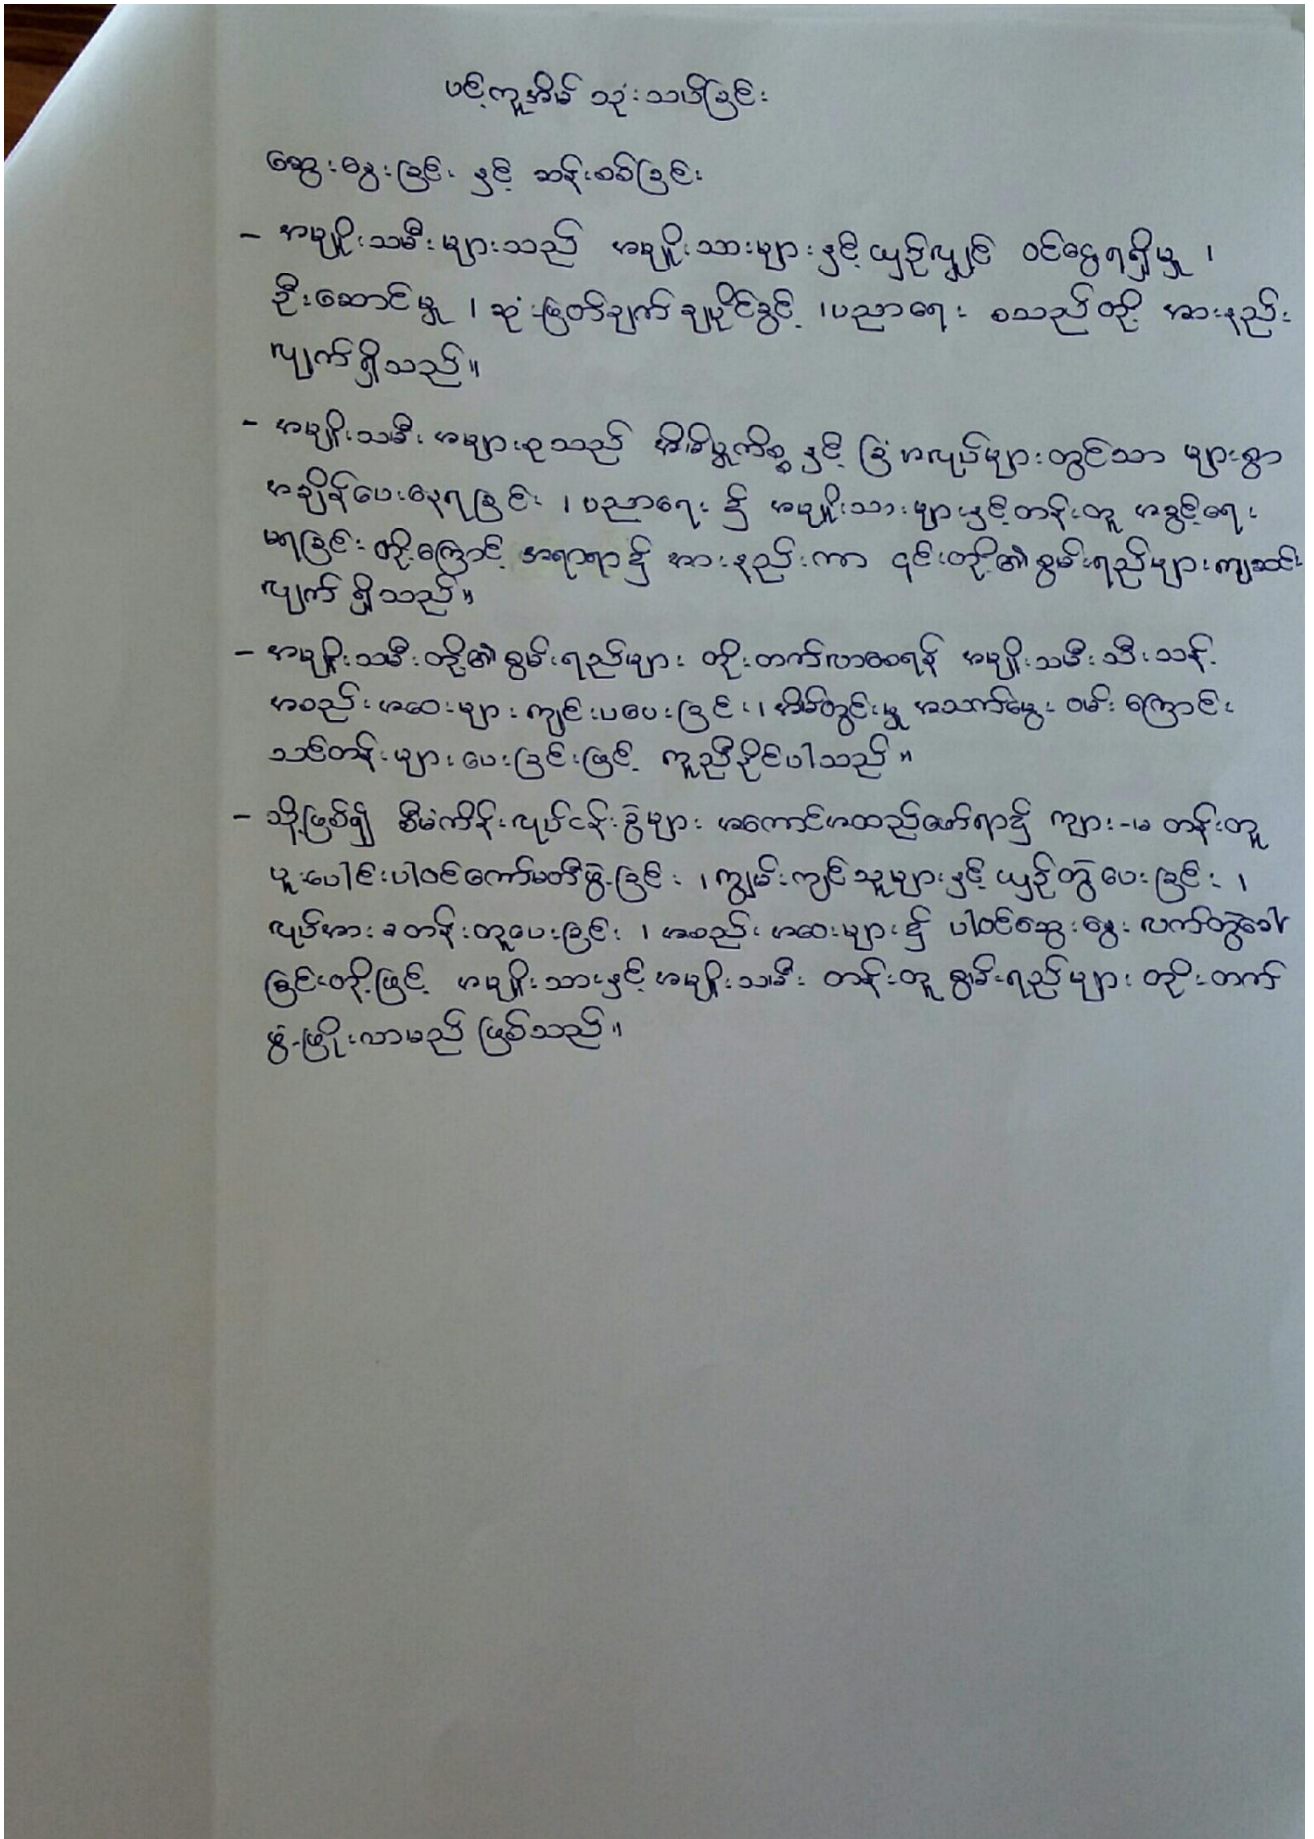 ပင့်ကူအိမ် သုံးသပ်ခြင်း
ဆွေးနွေးခြင်း နှင့် ဆန်းစစ်ခြင်း
- အမျိုးသမီးများသည် အမျိုးသားများနှင့်ယှဉ်လျှင် ဝင်ငွေရရှိမှု ၊
ဦးဆောင်မှု ၊ ဆုံးဖြတ်ချက်ချပိုင်ခွင့် ၊ ပညာရေး စသည်တို့ အားနည်း
လျက်ရှိသည်။
- အမျိုးသမီးအများစုသည် အိမ်မှုကိစ္စနှင့် ခြံအလုပ်များတွင်သာ များစွာ
အချိန်ပေးနေရခြင်း ၊ ပညာရေး ၌ အမျိုးသားများနှင့်တန်းတူ အခွင့်ရေး
မရခြင်းတို့ကြောင့် အရာရာ၌ အားနည်းကာ ၎င်းတို့၏စွမ်းရည်များကျဆင်း
လျက် ရှိသည်။
- အမျိုးသမီးတို့၏စွမ်းရည်များ တိုးတက်လာစေရန် အမျိုးသမီးသီးသန့်
အစည်းအဝေးများ ကျင်းပပေးခြင်း ၊ အိမ်တွင်းမှု အသက်မွေး ဝမ်းကြောင်း
သင်တန်းများပေးခြင်းဖြင့် ကူညီနိုင်ပါသည်။
- သို့ဖြစ်၍ စီမံကိန်းလုပ်ငန်းခွဲများ အကောင်အထည်ဖော်ရာ၌ ကျား-မ တန်းတူ
ပူးပေါင်းပါဝင်ကော်မတီဖွဲ့ခြင်း ၊ ကျွမ်းကျင်သူများနှင့် ယှဉ်တွဲပေးခြင်း ၊
လုပ်အားခတန်းတူပေးခြင်း ၊ အစည်းအဝေးများ၌ ပါဝင်ဆွေးနွေး လက်တွဲခေါ်
ခြင်းတို့ဖြင့် အမျိုးသားနှင့်အမျိုးသမီး တန်းတူ စွမ်းရည်များ တိုးတက်
ဖွံ့ဖြိုးလာမည် ဖြစ်သည်။